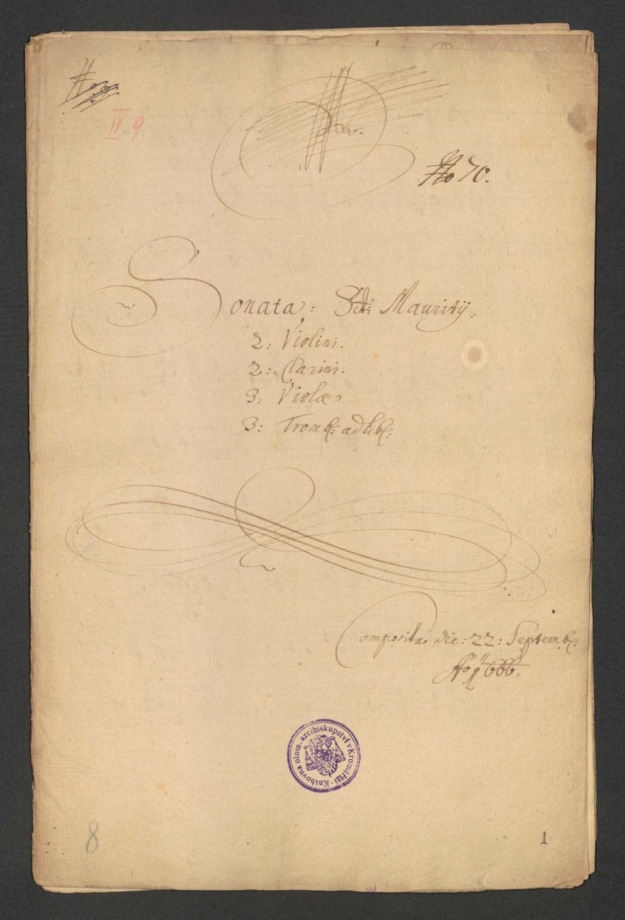 IV. 9.
No 70.
Sonata: Sti Mauritij.
2: Violini.
2: Clarini.
3: Violæ
3: Tromb: ad lib:
Composita die: 22: Septemb:
Ao 1666.
Knihovna olom. arcibiskupství v Kroměříži
8
1